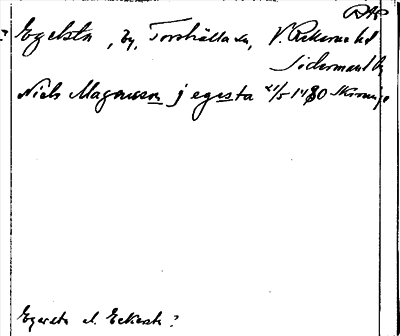 Egelsta, by, Torshälla sn, V. Rekarne hd
Södermanl.
Niels Magnusson j egesta 21/5 1480
Egersta el. Eckersta?